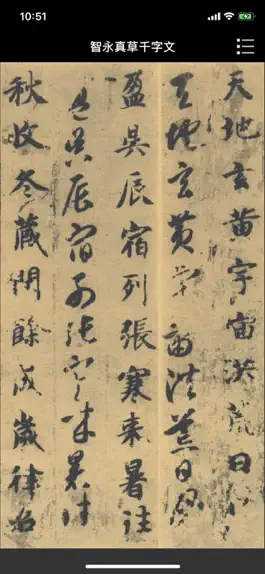 10:51
智永真草千字文
天地玄黄宇宙洪荒日月
天地玄黄宇宙洪荒日月
盈昃辰宿列張寒来暑往
盈昃辰宿列張寒来暑往
秋收冬藏閏餘成歲律召